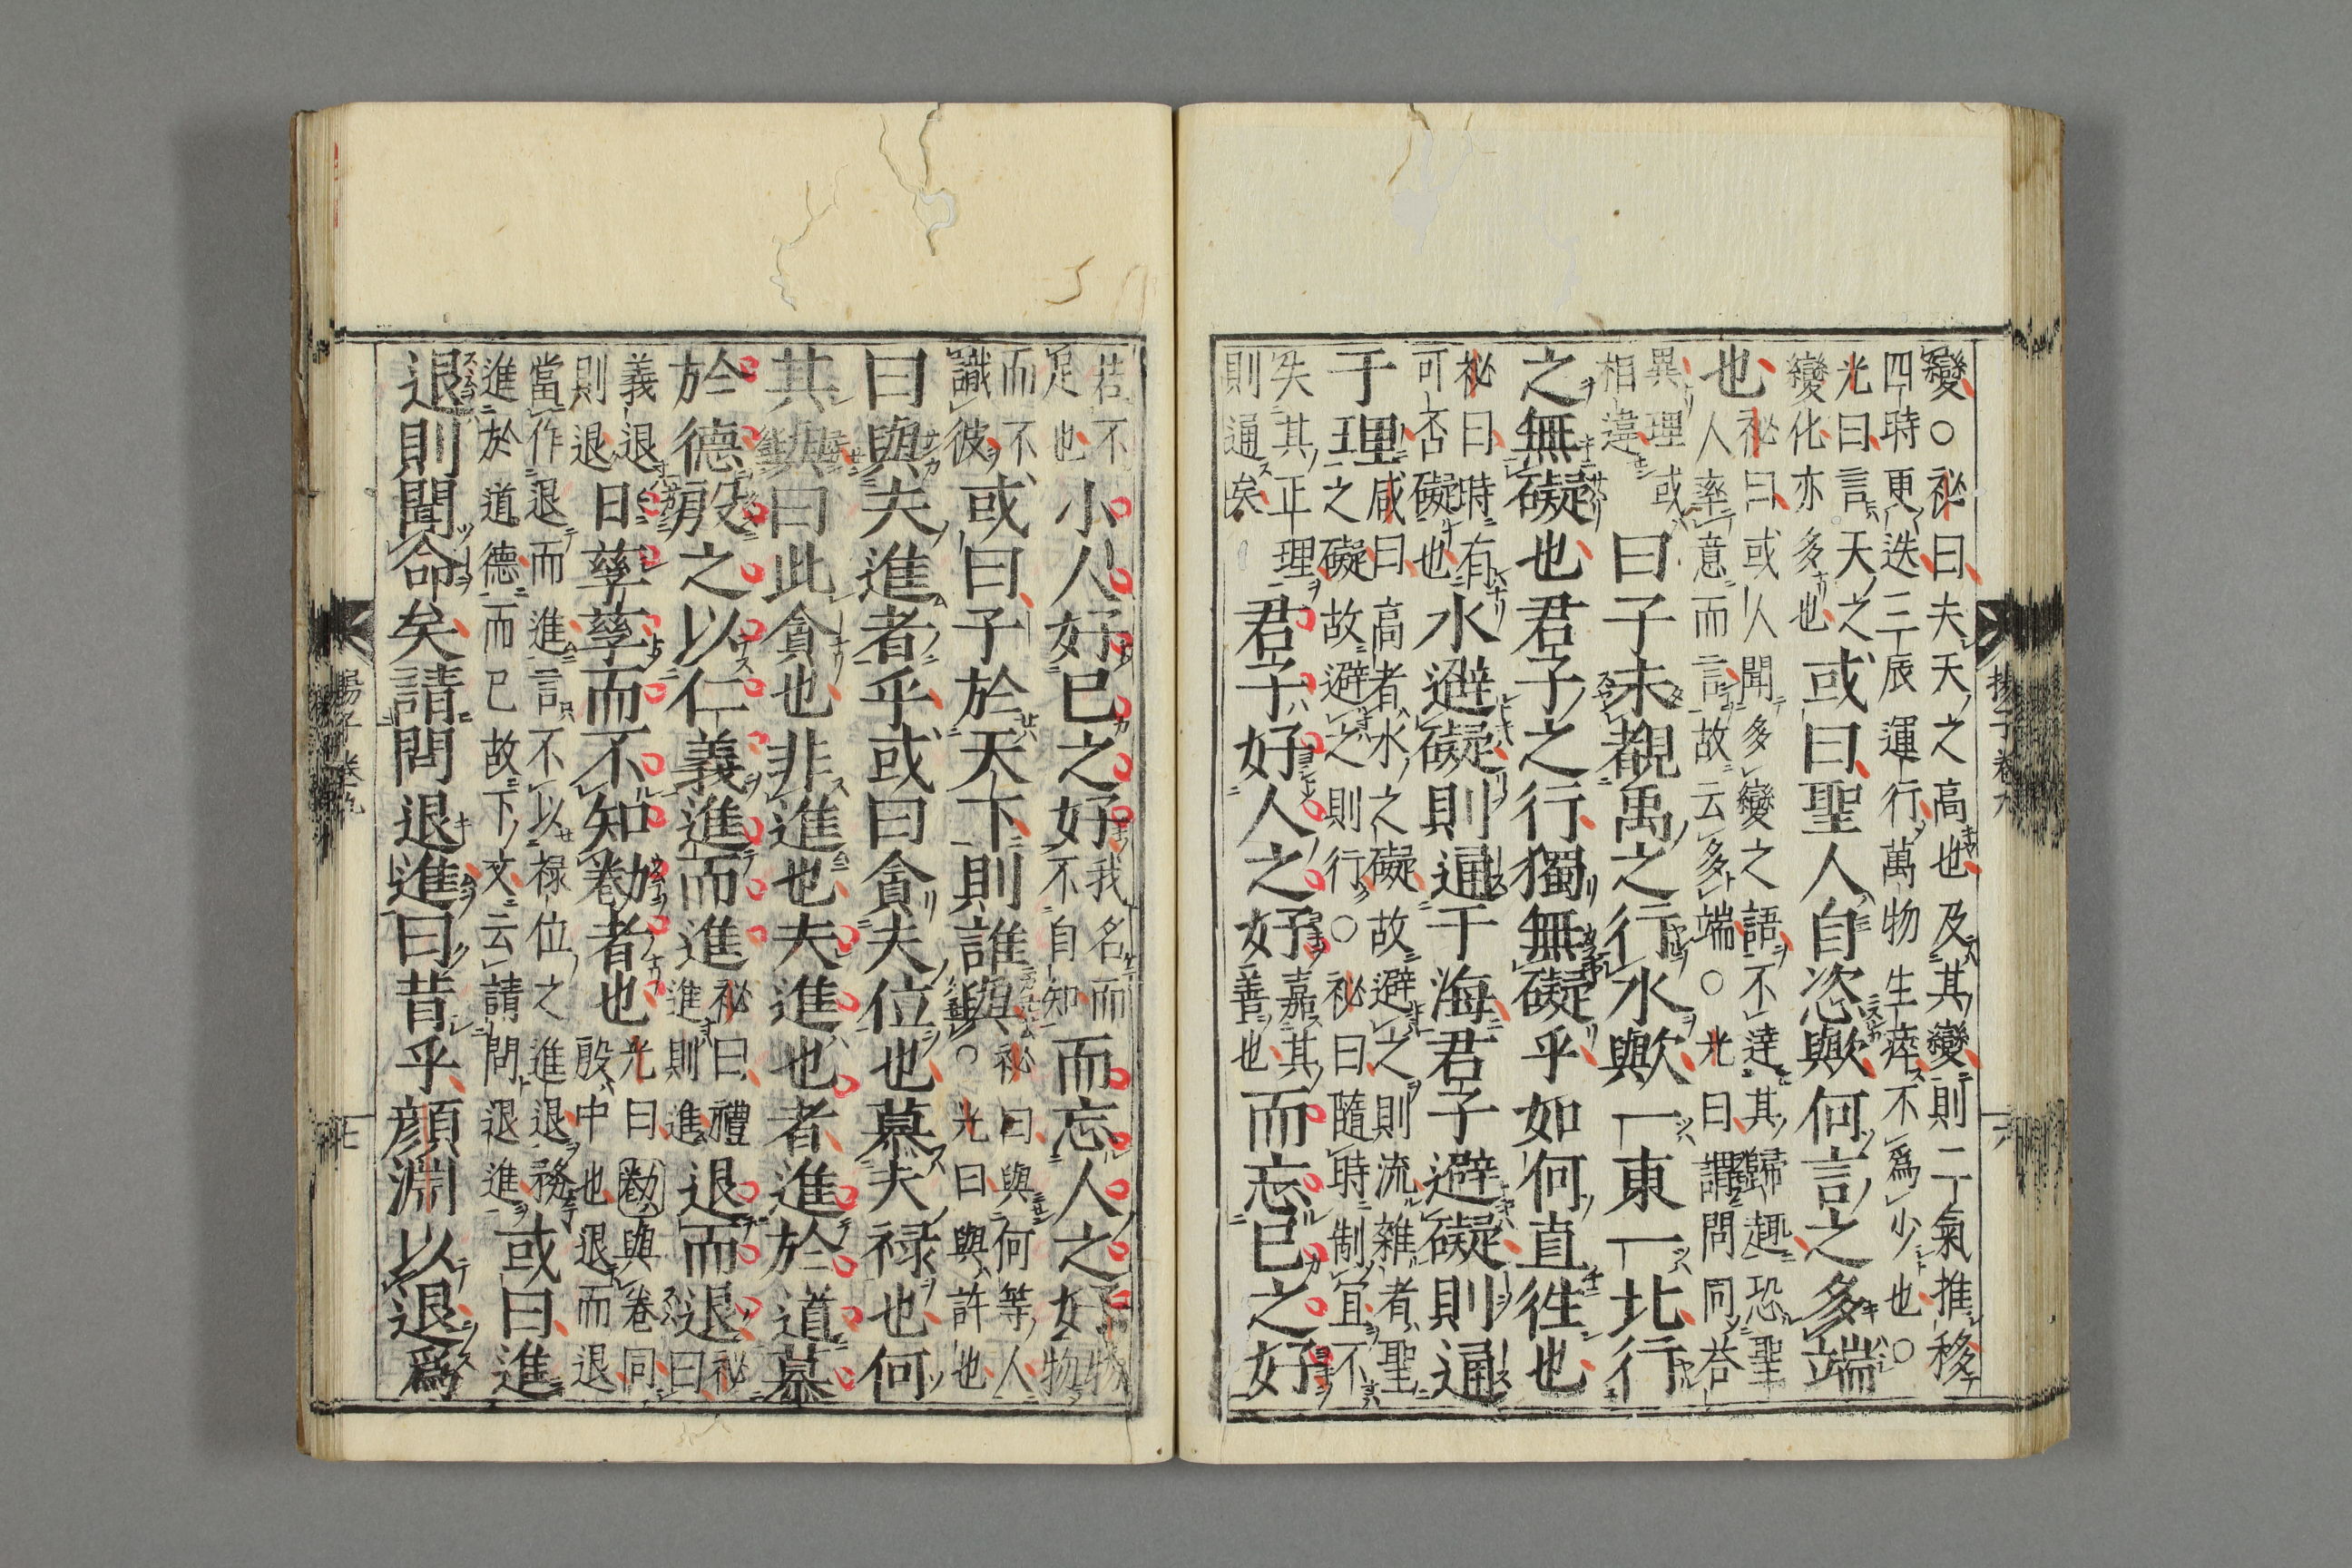 變○祕曰夫天之高也及其變則二氣推移
四時更迭三辰運行萬物生瘁不爲少也○
光曰言天之
變化亦多也
或曰聖人自恣歟何言之多端
也
祕曰或人聞多變之語不達其歸趣恐聖
人率意而言故云多端○光曰謂問同荅
異理或
相違
曰子未覩禹之行水歟一東一北行
之無礙也君子之行獨無礙乎如何直徃也
祕曰時有
可否礙也
水避礙則通于海君子避礙則通
于理
咸曰高者水之礙故避之則流雜者聖
之礙故避之則行○祕曰隨時制宜不
失其正理
則通矣
君子好人之好
嘉其
善也
而忘己之好
揚子卷九
六
若不
足也
小人好己之好
我名而
不自知
而忘人之好
物
物
而不
識彼
或曰子於天下則誰與
祕曰與何等人
○光曰與許也
曰與夫進者乎或曰貪夫位也慕夫禄也何
其與曰此貪也非進也夫進也者進於道慕
於德殷之以仁義進而進
祕曰禮
進則進
退而退
祕
曰
義退
則退
日孳孳而不知勌者也
光曰勌與卷同
殷中也退而退
當作退而進言不以禄位之進退務
進於道德而已故下文云請問退進
或曰進
退則聞命矣請問退進曰昔乎顔淵以退爲
揚子卷九
七